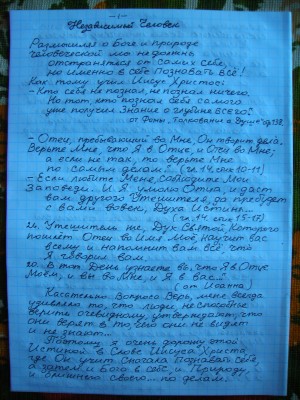 -1-
Независимый Человек
Размышляя о Боге и природе
человеческой мы не должны
отстраняться от самих себя,
но именно в себе познавать всё!
Как тому учил Иисус Христос:
– Кто себя не познал, не познал ничего.
Но тот, кто познал себя самого
уже получил знание о глубине всего."
от Фомы,
– Отец, пребывающий во Мне, Он творит дела.
Верьте Мне, что Я в Отце, и Отец во Мне;
а если не так, то верьте Мне
по самым делам." (гл.14. стих 10-11)
– Если любите Меня, соблюдите Мои
Заповеди. И Я умолю Отца, и даст
вам другого Утешителя, да пребудет
с вами вовек, Духа Истины...
(гл.14. стих 15-17)
Утешитель же, Дух Святой, Которого
пошлёт Отец во Имя Моё, научит вас
всему и напомнит вам всё, что
Я говорил вам.
20. – В тот День узнаете вы, что Я в Отце
Моём, и вы во Мне, и Я в вас."
(от Иоанна)
Касательно вопроса Веры, меня всегда
удивляло то, что люди не способные
верить очевидному, утверждают, что
они верят в то, чего они не видят
и не знают...
Поэтому я очень дорожу этой
Истиной в Слове Иисуса Христа,
где Он учит сначала Познавать себя,
а затем и Бога в себе, и Природу,
и ближнего своего... по делам.